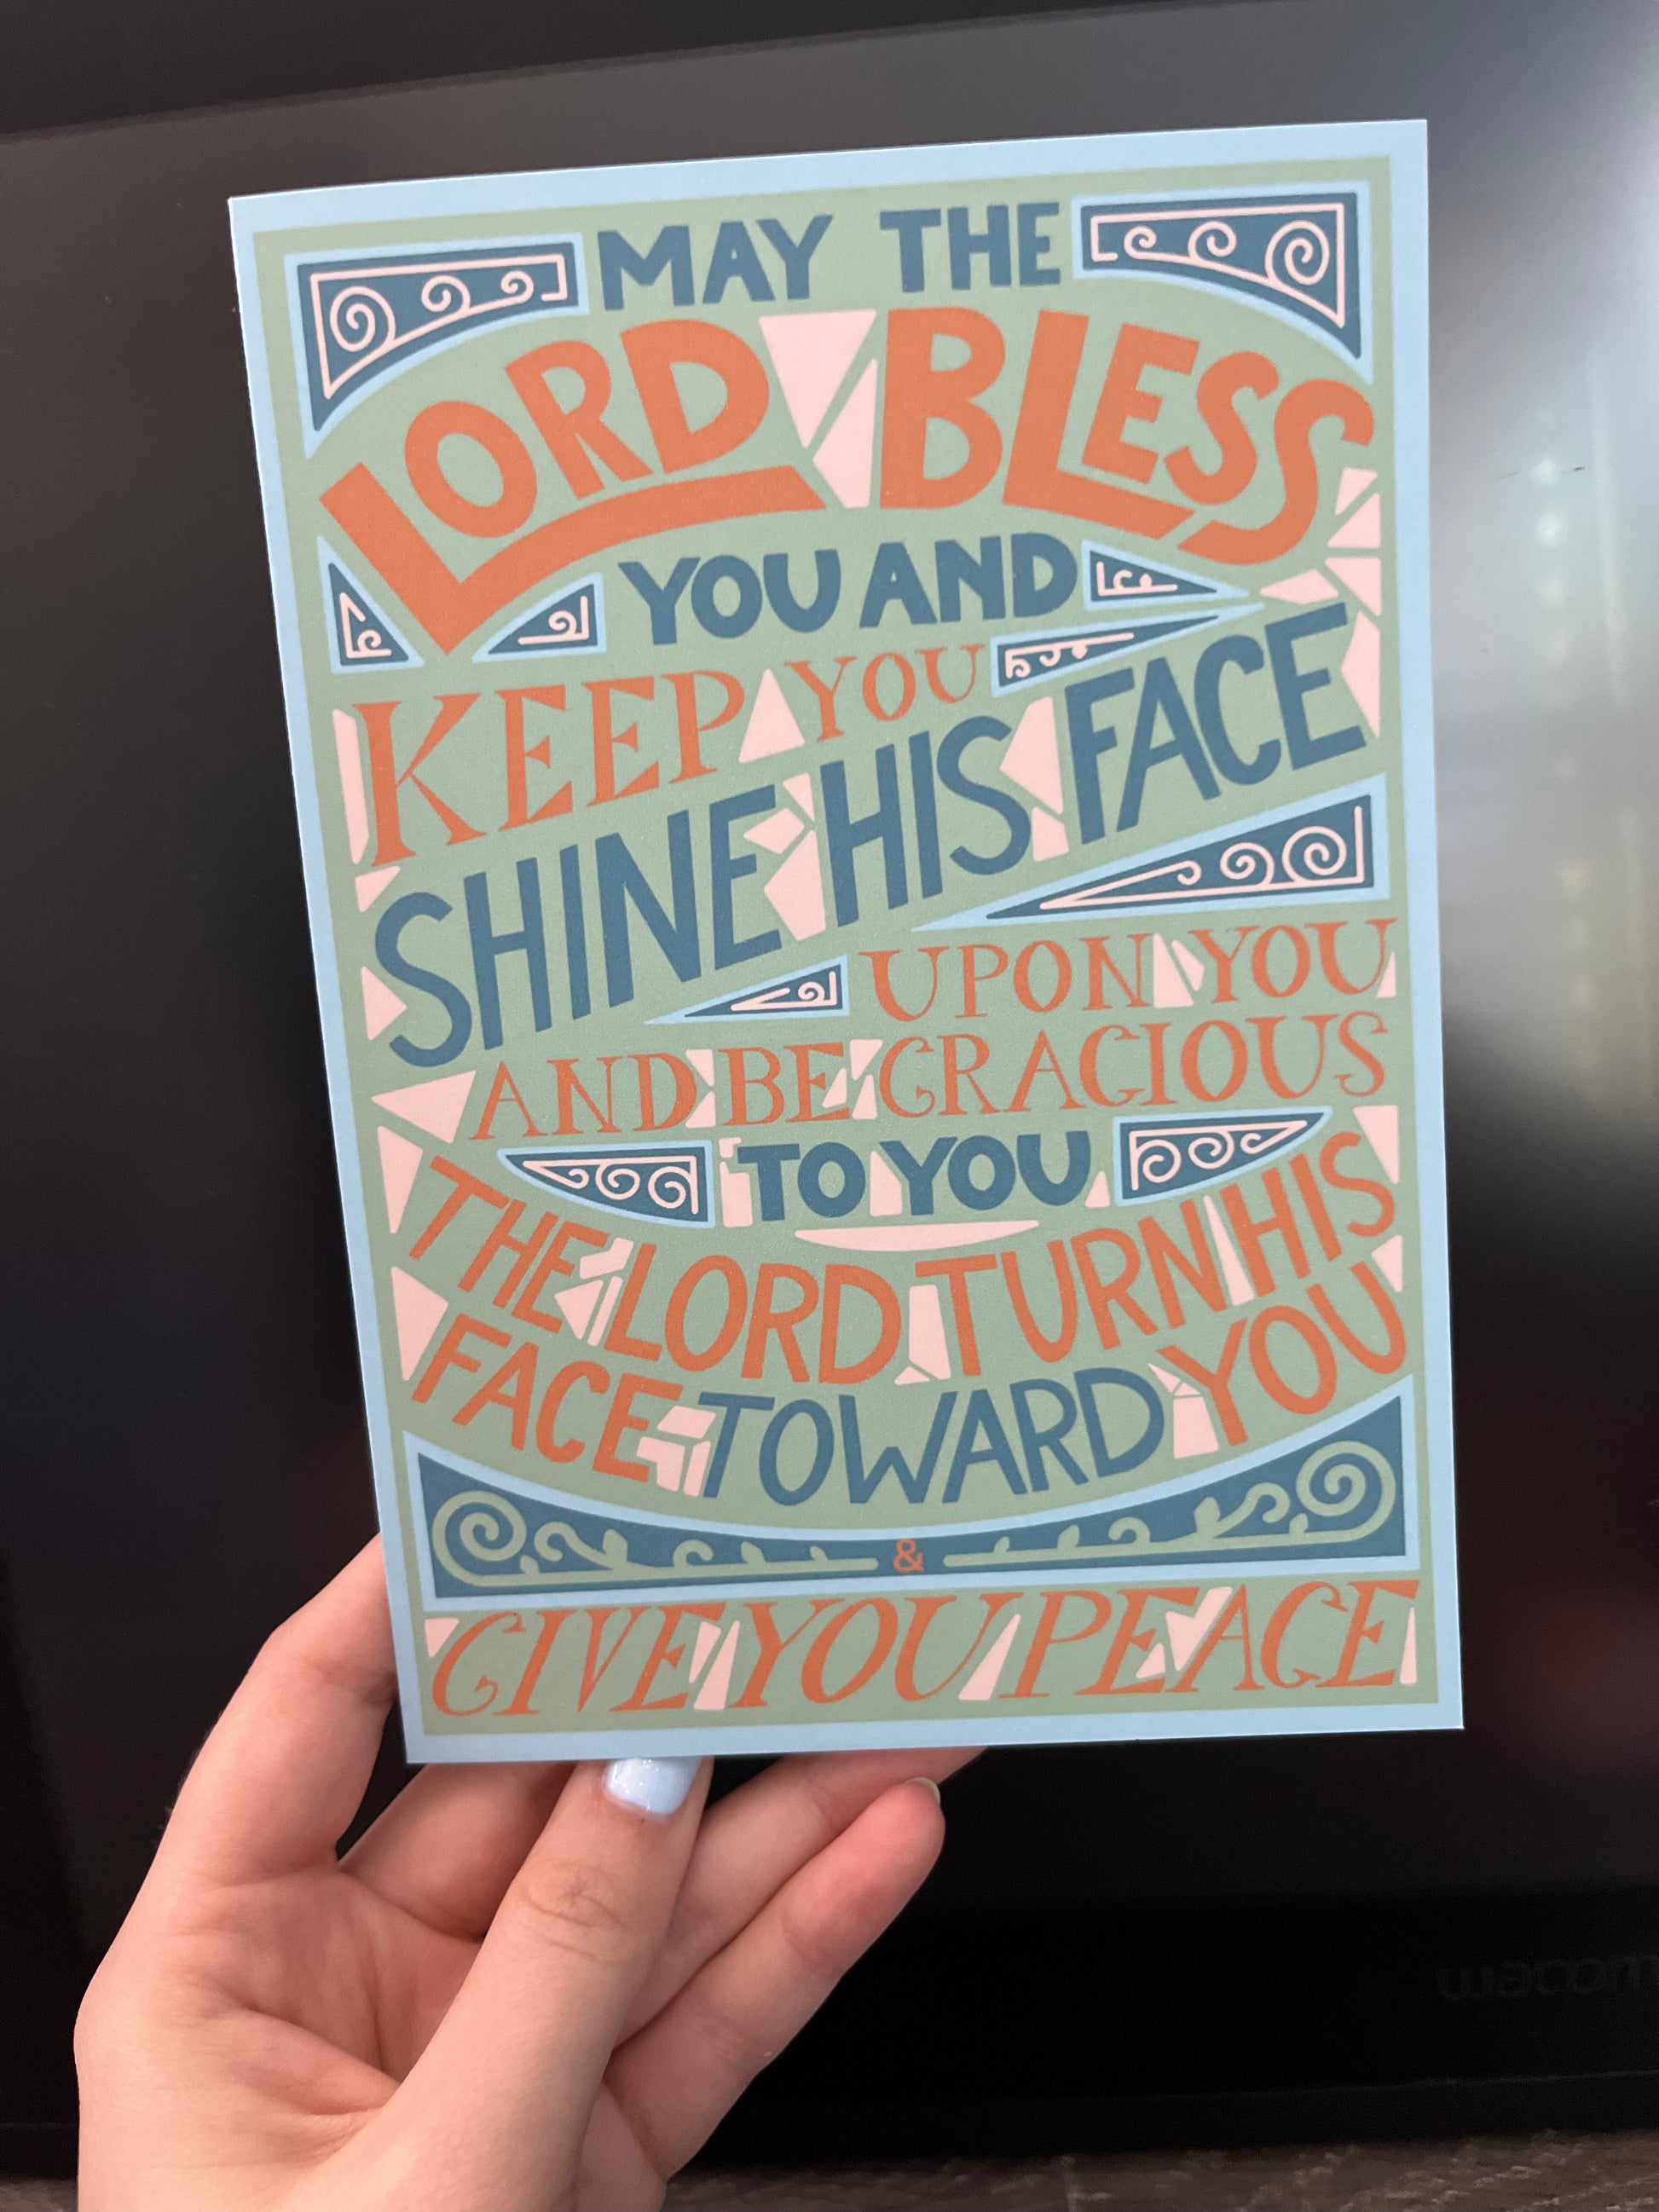 MAY THE
LORD BLESS
YOU AND
KEEP YOU
SHINE HIS FACE
UPON YOU
AND BE GRACIOUS
TO YOU
THE LORD TURN HIS
FACE TOWARD YOU
&
GIVE YOU PEACE
wacom